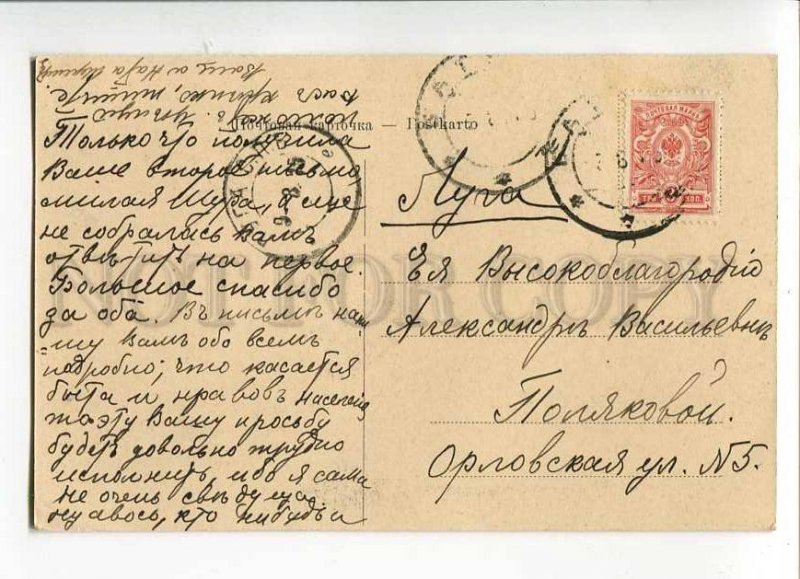 Почтовая карточка — Postkarto
Только что получила
Ваше второе письмо
милая Шура, а еще
не собралась Вамъ
отвѣтить на первое.
Большое спасибо
за оба. Въ письмѣ напи-
шу Вамъ обо всемъ
подробно; что касается
быта и нравовъ населенія
то эту Вашу просьбу
будетъ довольно трудно
исполнить, ибо я сама
не очень свѣдуща.
Ну авось, кто нибудь и
крѣпко, пишите.
Ваша Ната
Луга
Ея Высокоблагородію
Александрѣ Васильевнѣ
Поляковой.
Орловская ул. N5.
NOT FOR COPY